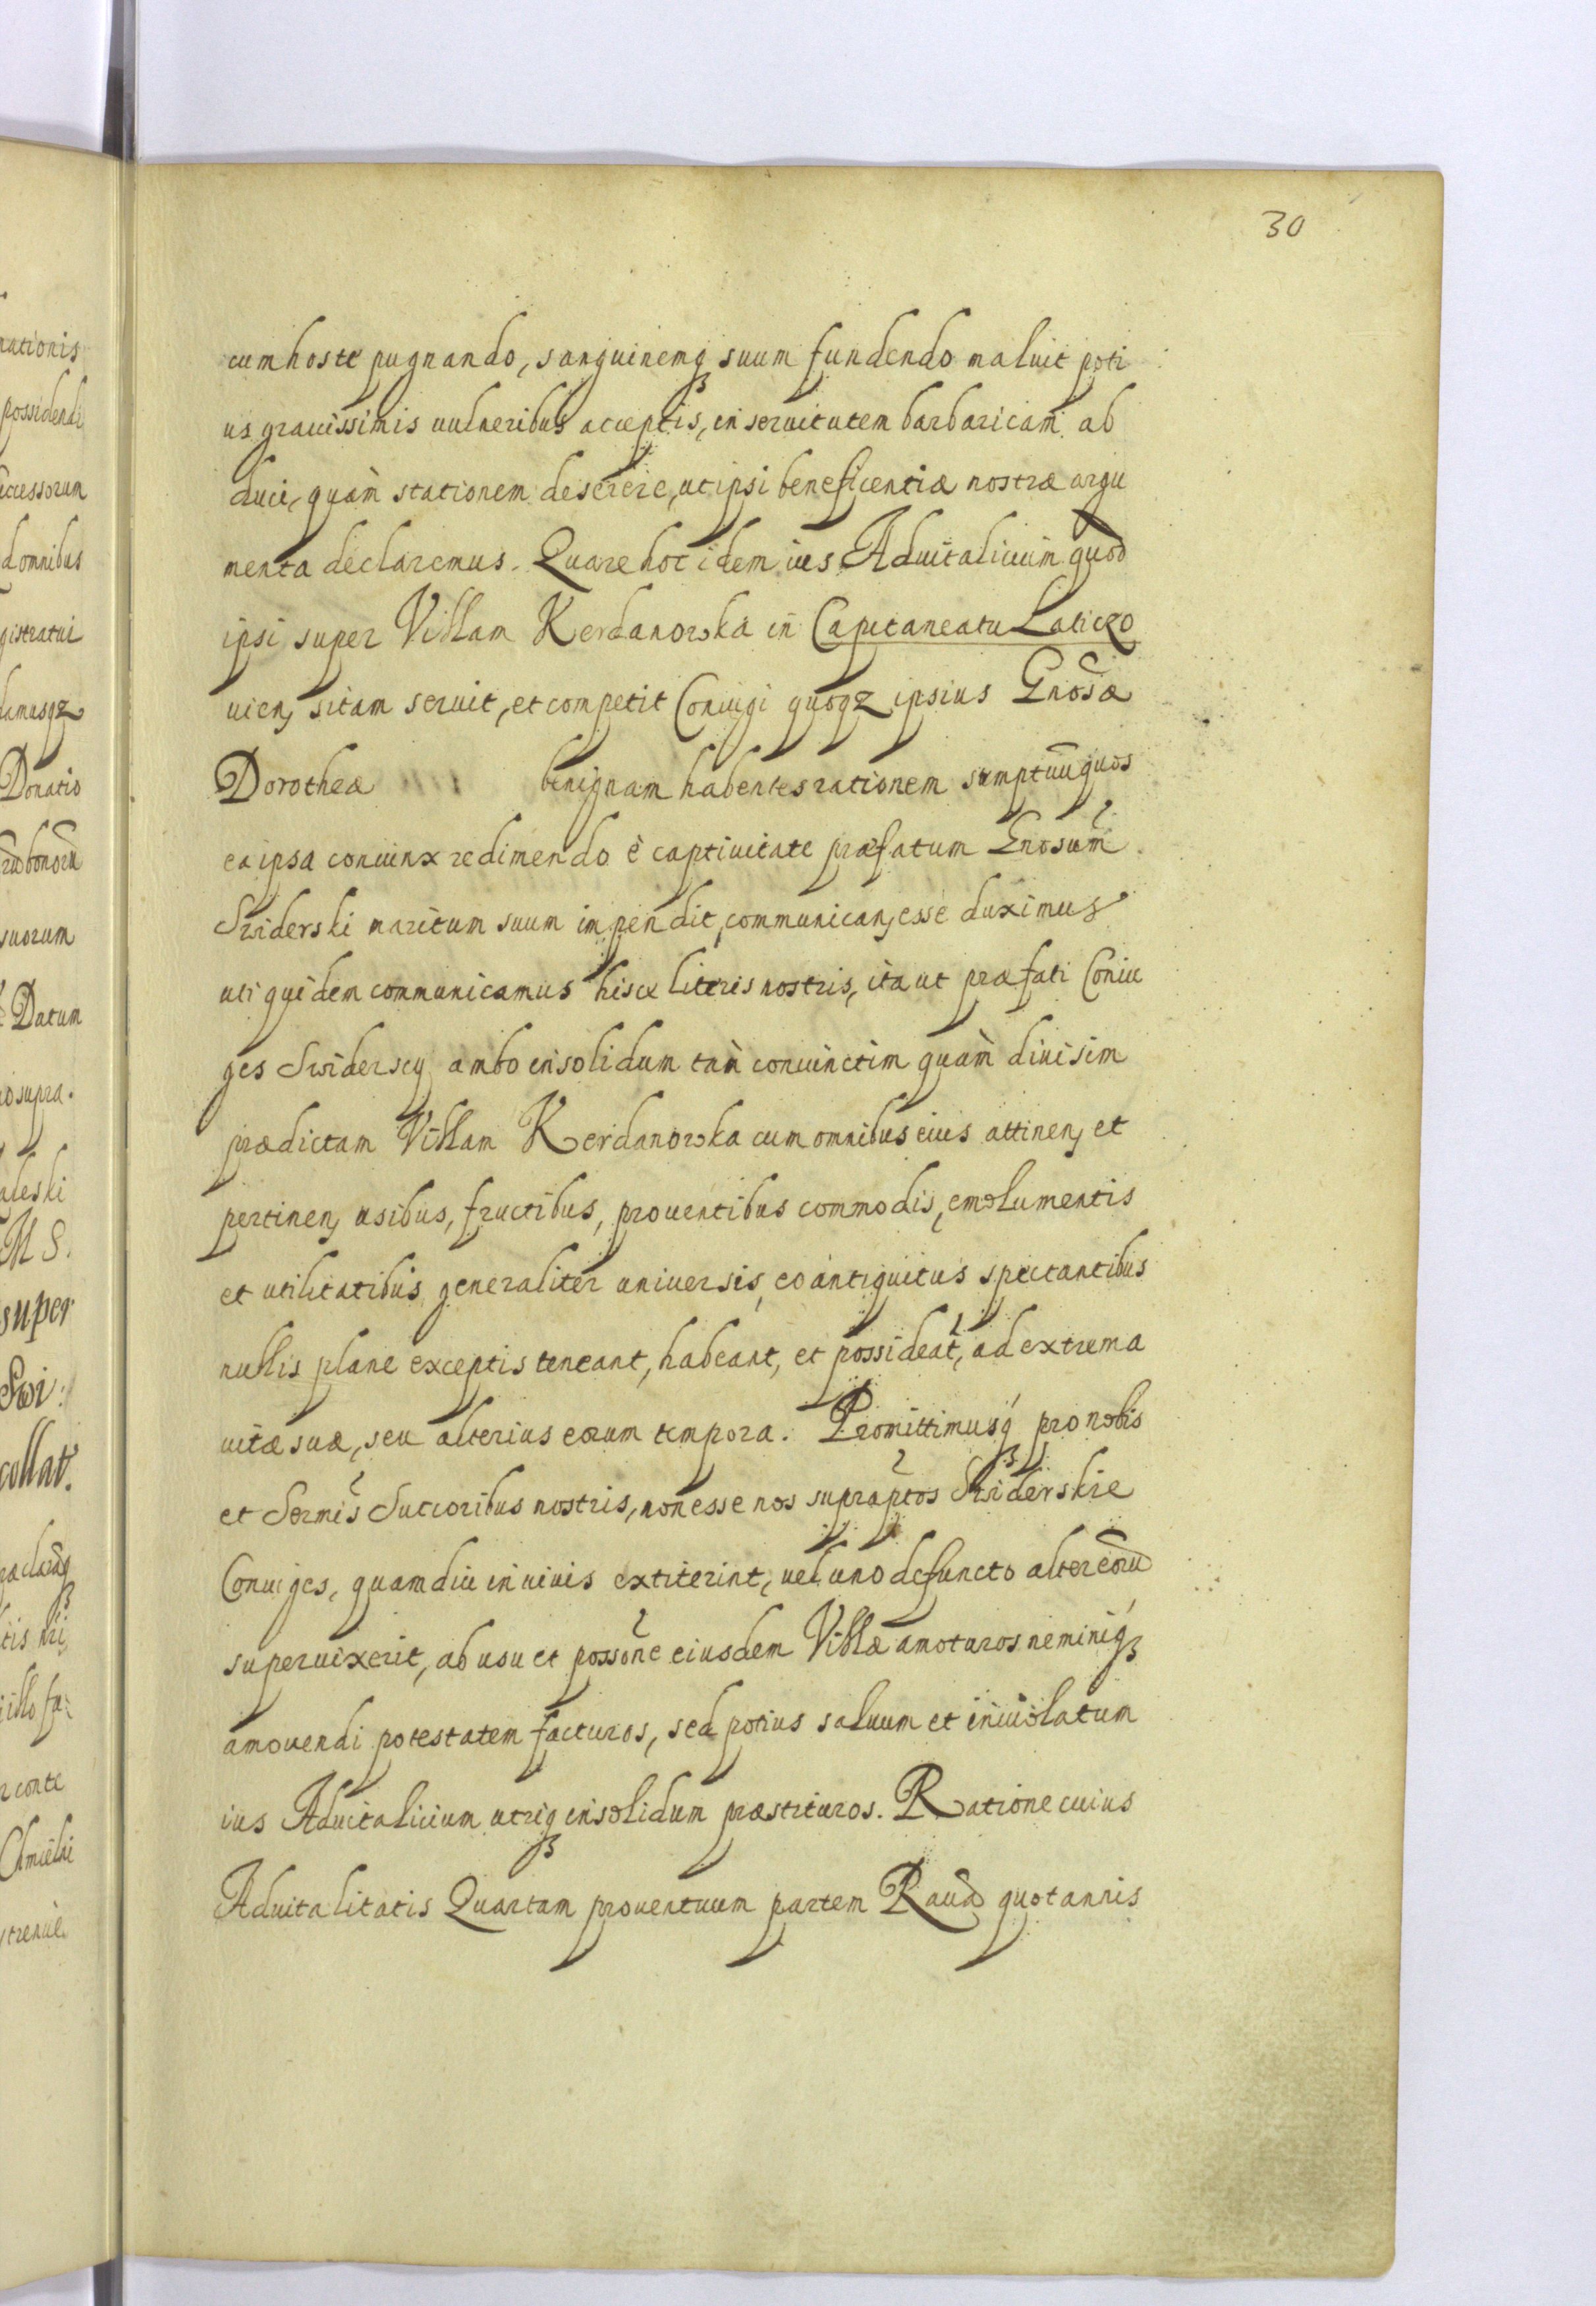 30
cum hoste pugnando, sanguinemq₃ suum fundendo maluit poti
us grauissimis uulneribus acceptis, in seruitutem barbaricam ab
duci, quàm stationem deserere, ut ipsi beneficentiæ nostræ argu
menta declaremus. Quare hoc idem ius Aduitalicium quod
ipsi super Villam Kerdanowka in Capitaneatu Laticzo
uien, sitam seruit, et competit Coniugi quoqz ipsius Gnosæ
Dorotheæ benignam habentes rationem sumptuū quos
ea ipsa coniunx redimendo è captiuitate præfatum Gnosum
Swiderski maritum suum impendit, communican, esse duximus
uti quidem communicamus hisce literis nostris, ita ut præfati Coniu
ges Swiderscy ambo in solidum tàm coniunctim quàm diuisim
prædictam Villam Kerdanowka cum omnibus eius attinen, et
pertinen, usibus, fructibus, prouentibus commodis, emolumentis
et utilitatibus generaliter uniuersis, eo antiquitus spectantibus
nullis plane exceptis teneant, habeant, et possideāt, ad extrema
uitæ suæ, seu alterius eorum tempora. Promittimusq₃ pro nobis
et Sermis Succoribus nostris, non esse nos suprapttos Swiderskie
Coniuges, quamdiu in uiuis extiterint, uel uno defuncto alter eorū
superuixerit, ab usu et possone eiusdem Villæ amoturos neminiq₃
amouendi potestatem facturos, sed potius saluum et inuiolatum
ius Aduitalicium utriq₃ in solidum præstituros. Ratione cuius
Aduitalitatis Quartam prouentuum partem Rauā quotannis